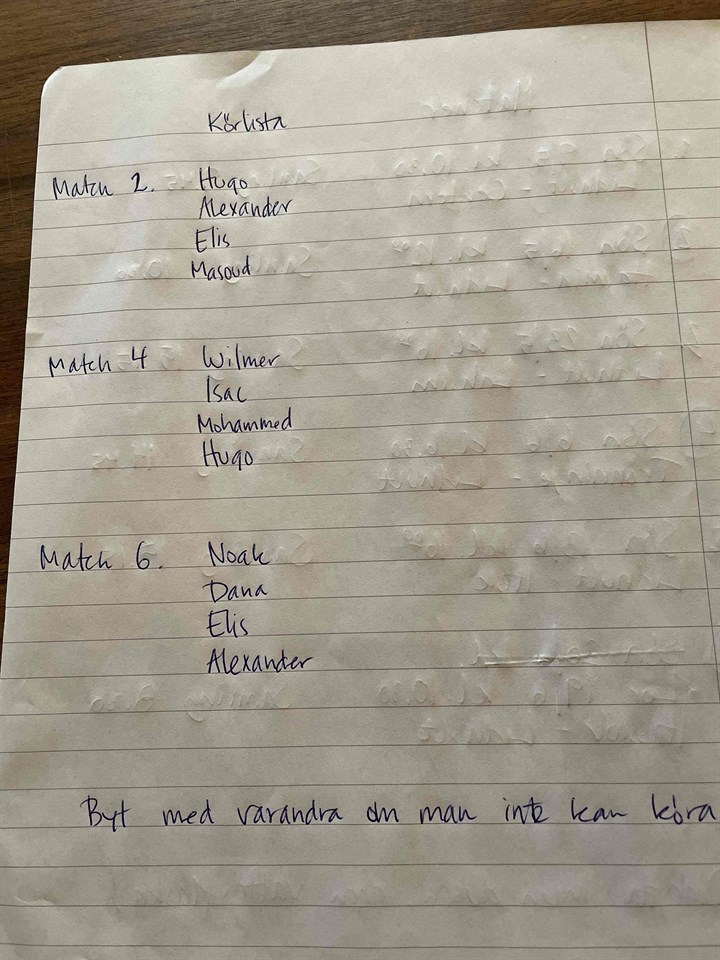 Körlista
Match 2. Hugo
Alexander
Elis
Masoud
Match 4 Wilmer
Isac
Mohammed
Hugo
Match 6. Noak
Dana
Elis
Alexander
Byt med varandra om man inte kan köra